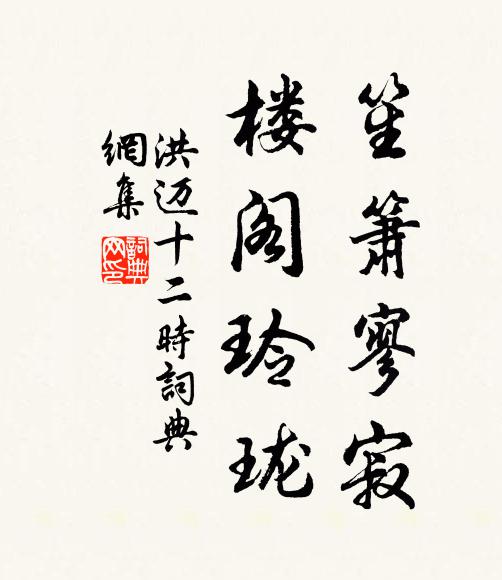 笙簫寥寂
楼阁玲珑
洪迈十二時詞典
網集
詞典网印